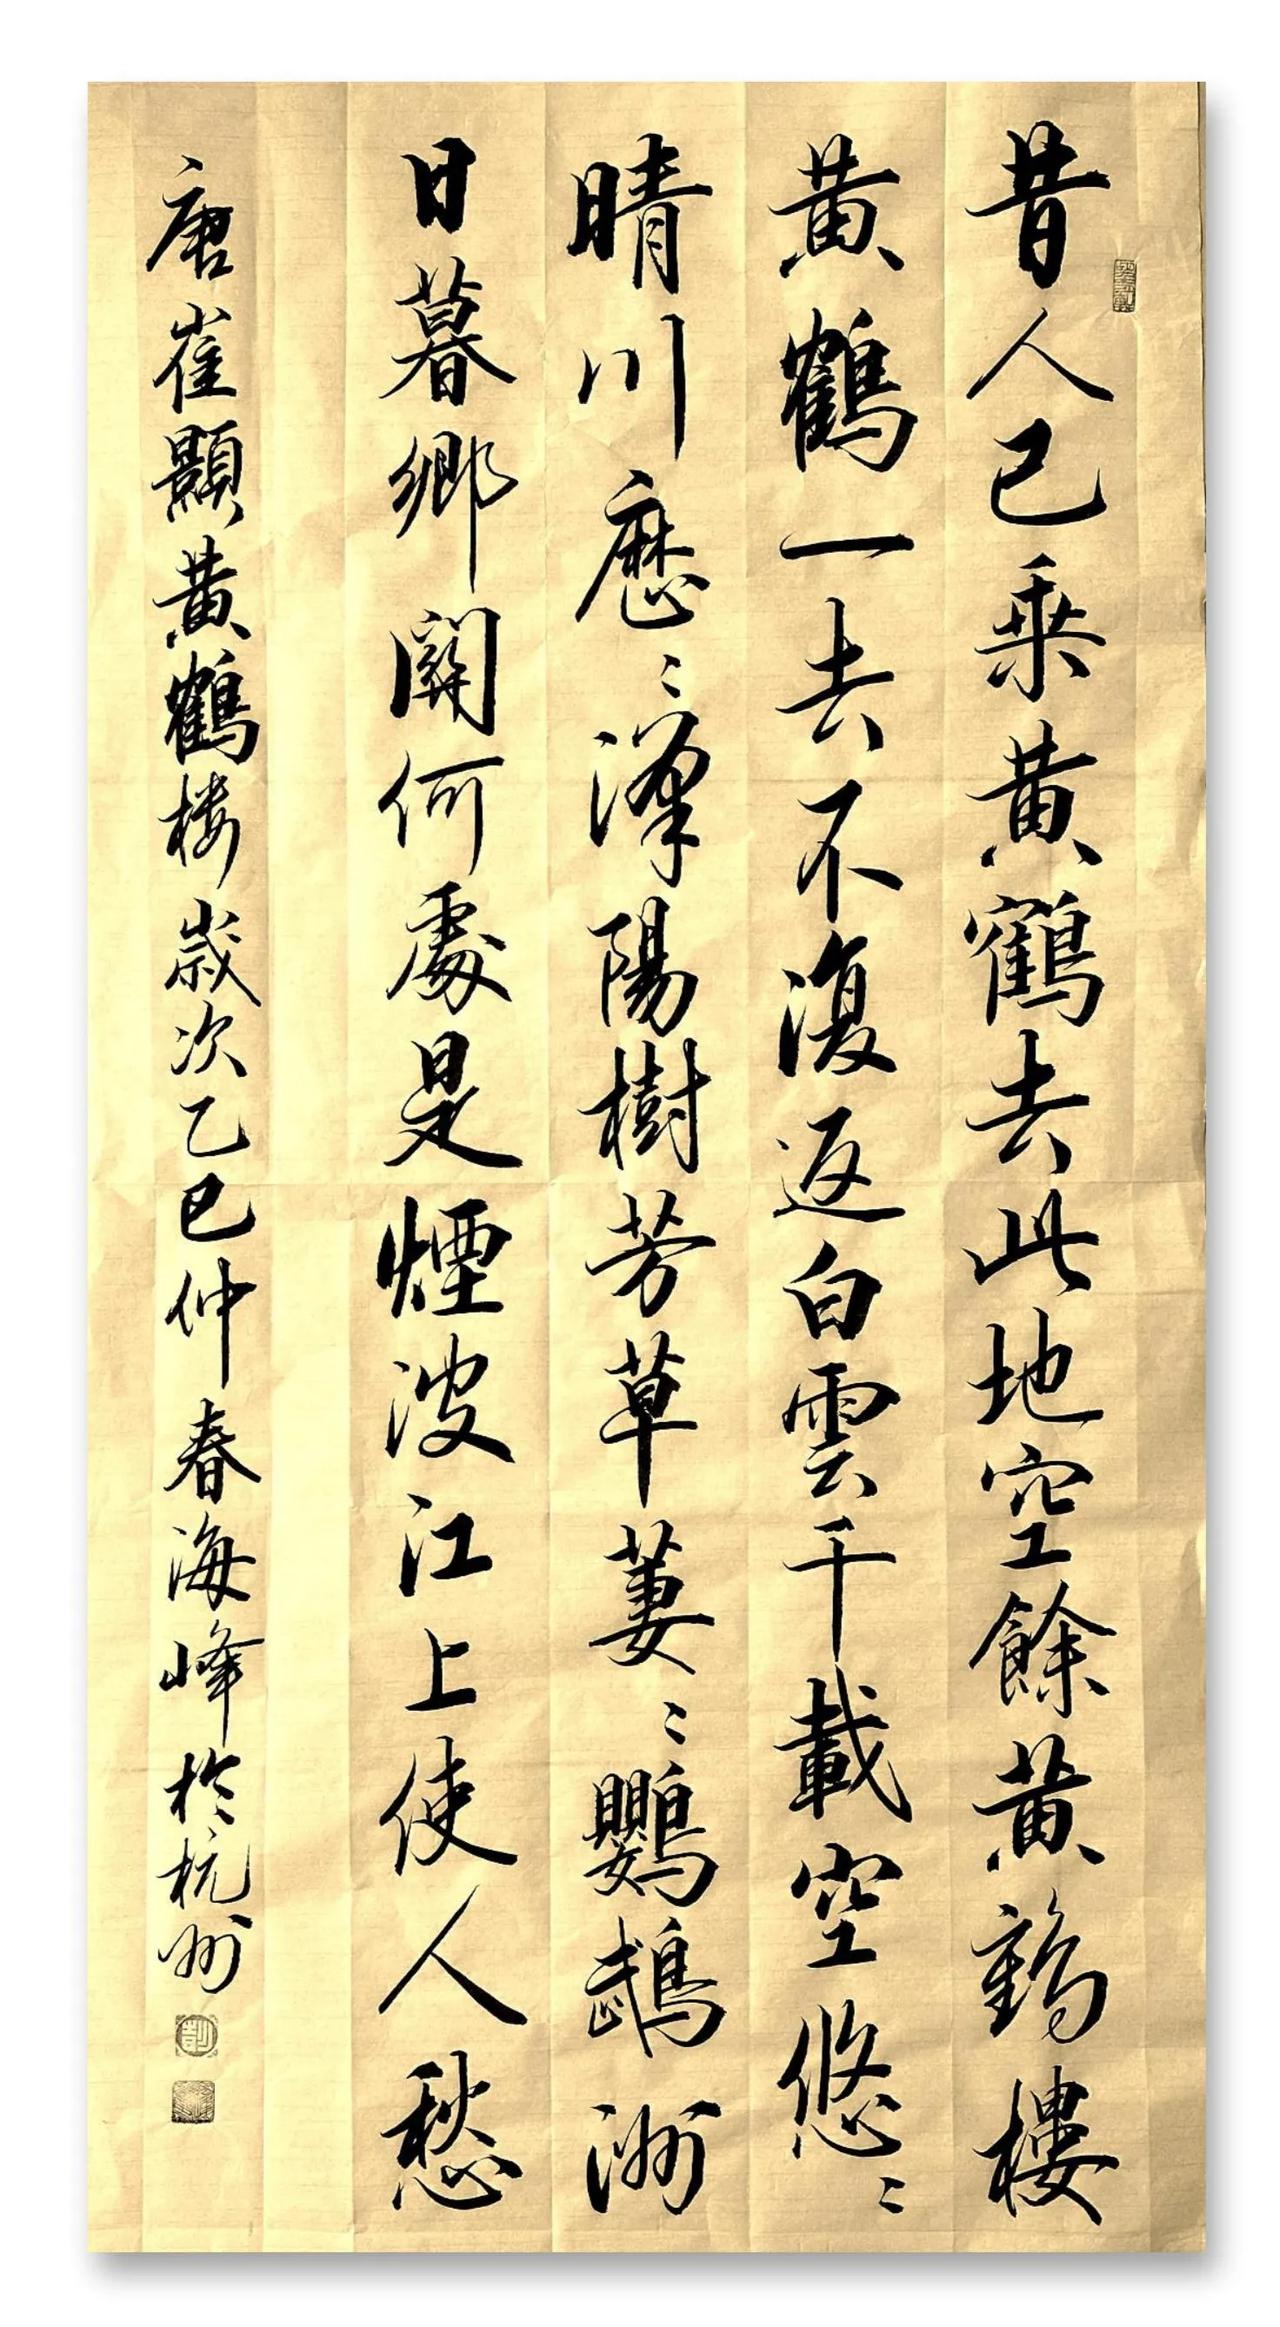 昔人已乘黄鶴去此地空餘黄鶴樓
黄鶴一去不復返白雲千載空悠〻
晴川歷〻漢陽樹芳草萋〻鸚鵡洲
日暮鄉關何處是煙波江上使人愁
唐崔顥黄鶴楼歲次乙巳仲春海峰於杭州